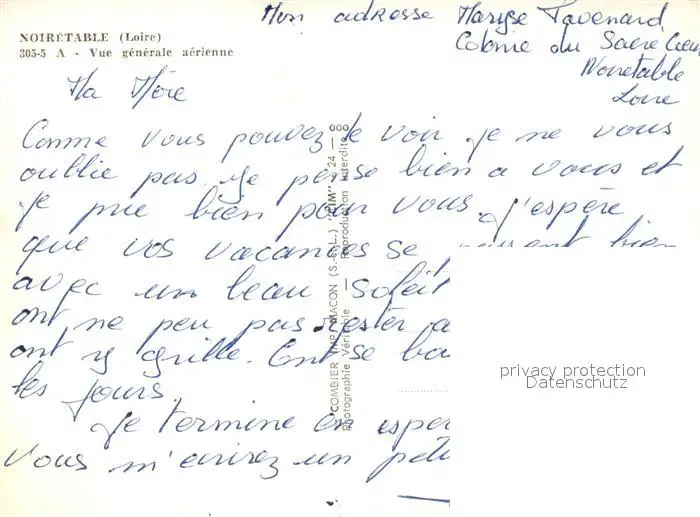 Mon adresse Maryse Tavenard
NOIRÉTABLE (Loire)
Colonie du Sacré Cœur
305-5 A - Vue générale aérienne
Noiretable
Loire
Ma Mère
Comme vous pouvez le voir je ne vous
oublie pas. Je pense bien a vous et
je prie bien pour vous. J'espère
que vos vacances se passent bien
avec un beau soleil
ont ne peu pas rester a
ont y grille. Ont se ba
les jours.
Je termine en esper
vous m'ecrirez un peti
"COMBIER IMP. MACON (S.-&-L.) "CIM"
Photographie Véritable - Reproduction interdite
privacy protection
Datenschutz